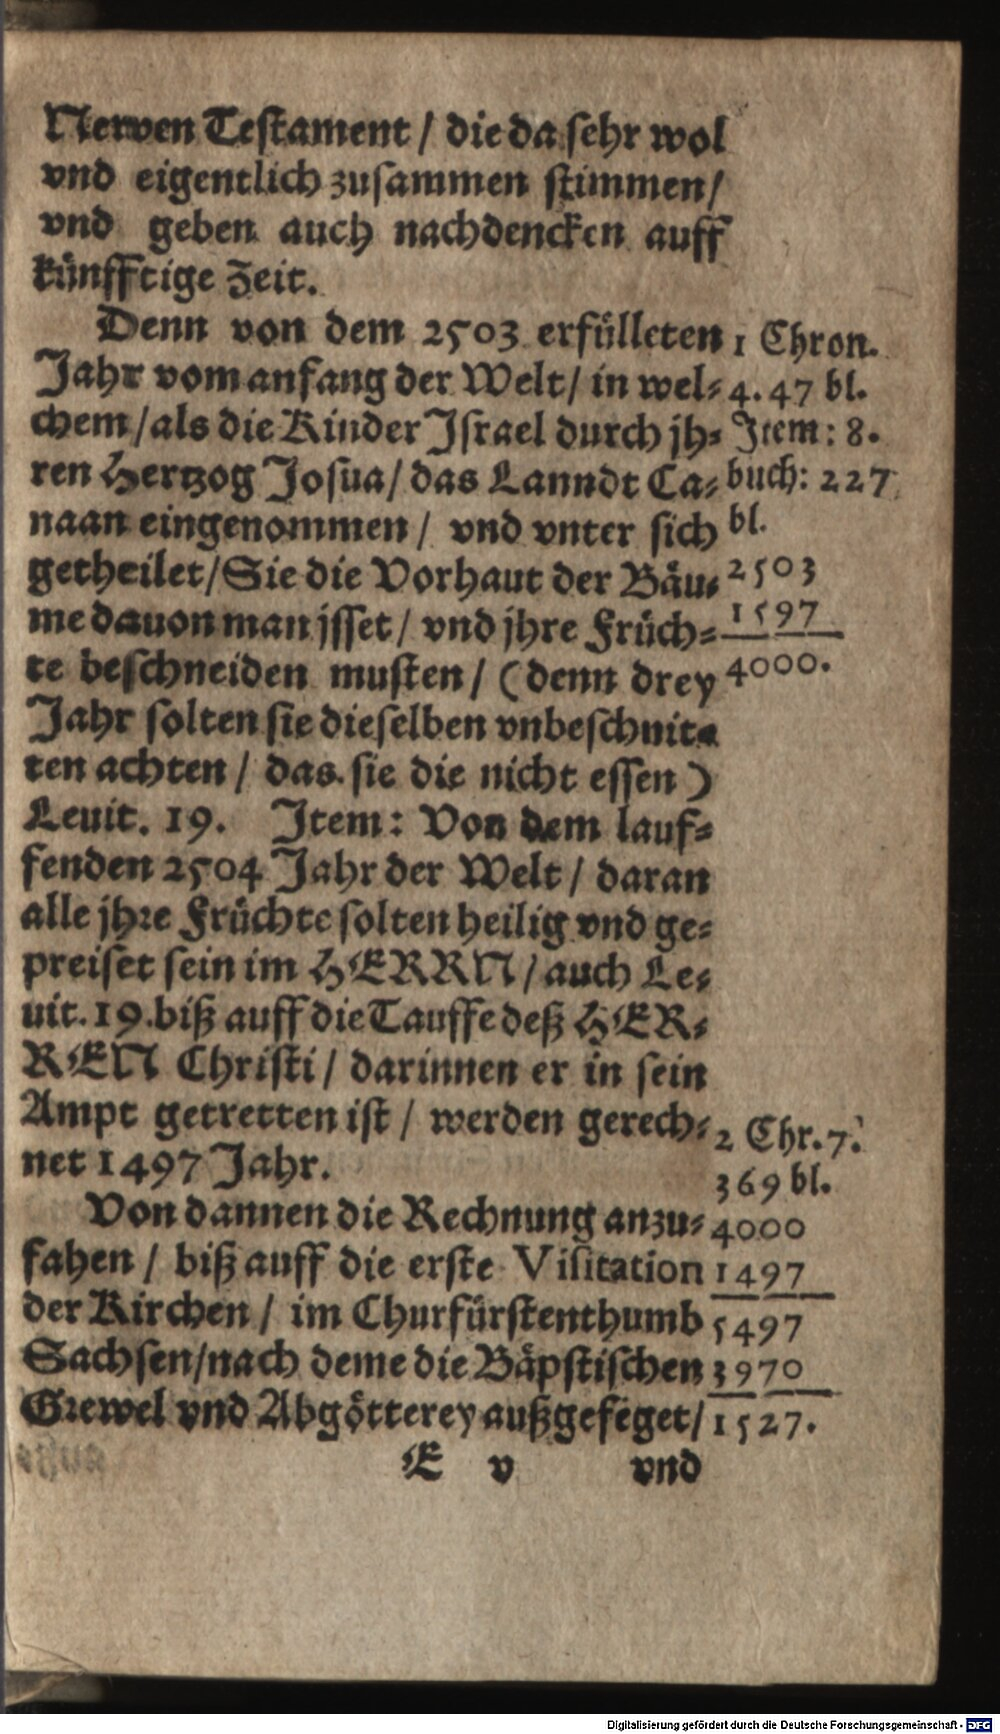 Newen Testament / die da sehr wol
vnd eigentlich zusammen stimmen /
vnd geben auch nachdencken auff
künfftige Zeit.
Denn von dem 2503 erfülleten
Jahr vom anfang der Welt / in wel-
chem / als die Kinder Israel durch jh-
ren Hertzog Josua / das Lanndt Ca-
naan eingenommen / vnd vnter sich
getheilet / Sie die Vorhaut der Bäu-
me dauon man jsset / vnd jhre Früch-
te beschneiden musten / (denn drey
Jahr solten sie dieselben vnbeschnit-
ten achten / das sie die nicht essen)
Leuit. 19. Item: Von dem lauf-
fenden 2504 Jahr der Welt / daran
alle jhre Früchte solten heilig vnd ge-
preiset sein im HERRN / auch Le-
uit. 19. biß auff die Tauffe deß HER-
REN Christi / darinnen er in sein
Ampt getretten ist / werden gerech-
net 1497 Jahr.
Von dannen die Rechnung anzu-
fahen / biß auff die erste Visitation
der Kirchen / im Churfürstenthumb
Sachsen / nach deme die Bäpstischen
Grewel vnd Abgötterey außgefeget /
E v vnd
1 Chron.
4. 47 bl.
Item: 8.
buch: 227
bl.
2503
1597
4000.
2 Chr. 7.
369 bl.
4000
1497
5497
3970
1527.
Digitalisierung gefördert durch die Deutsche Forschungsgemeinschaft - DFG